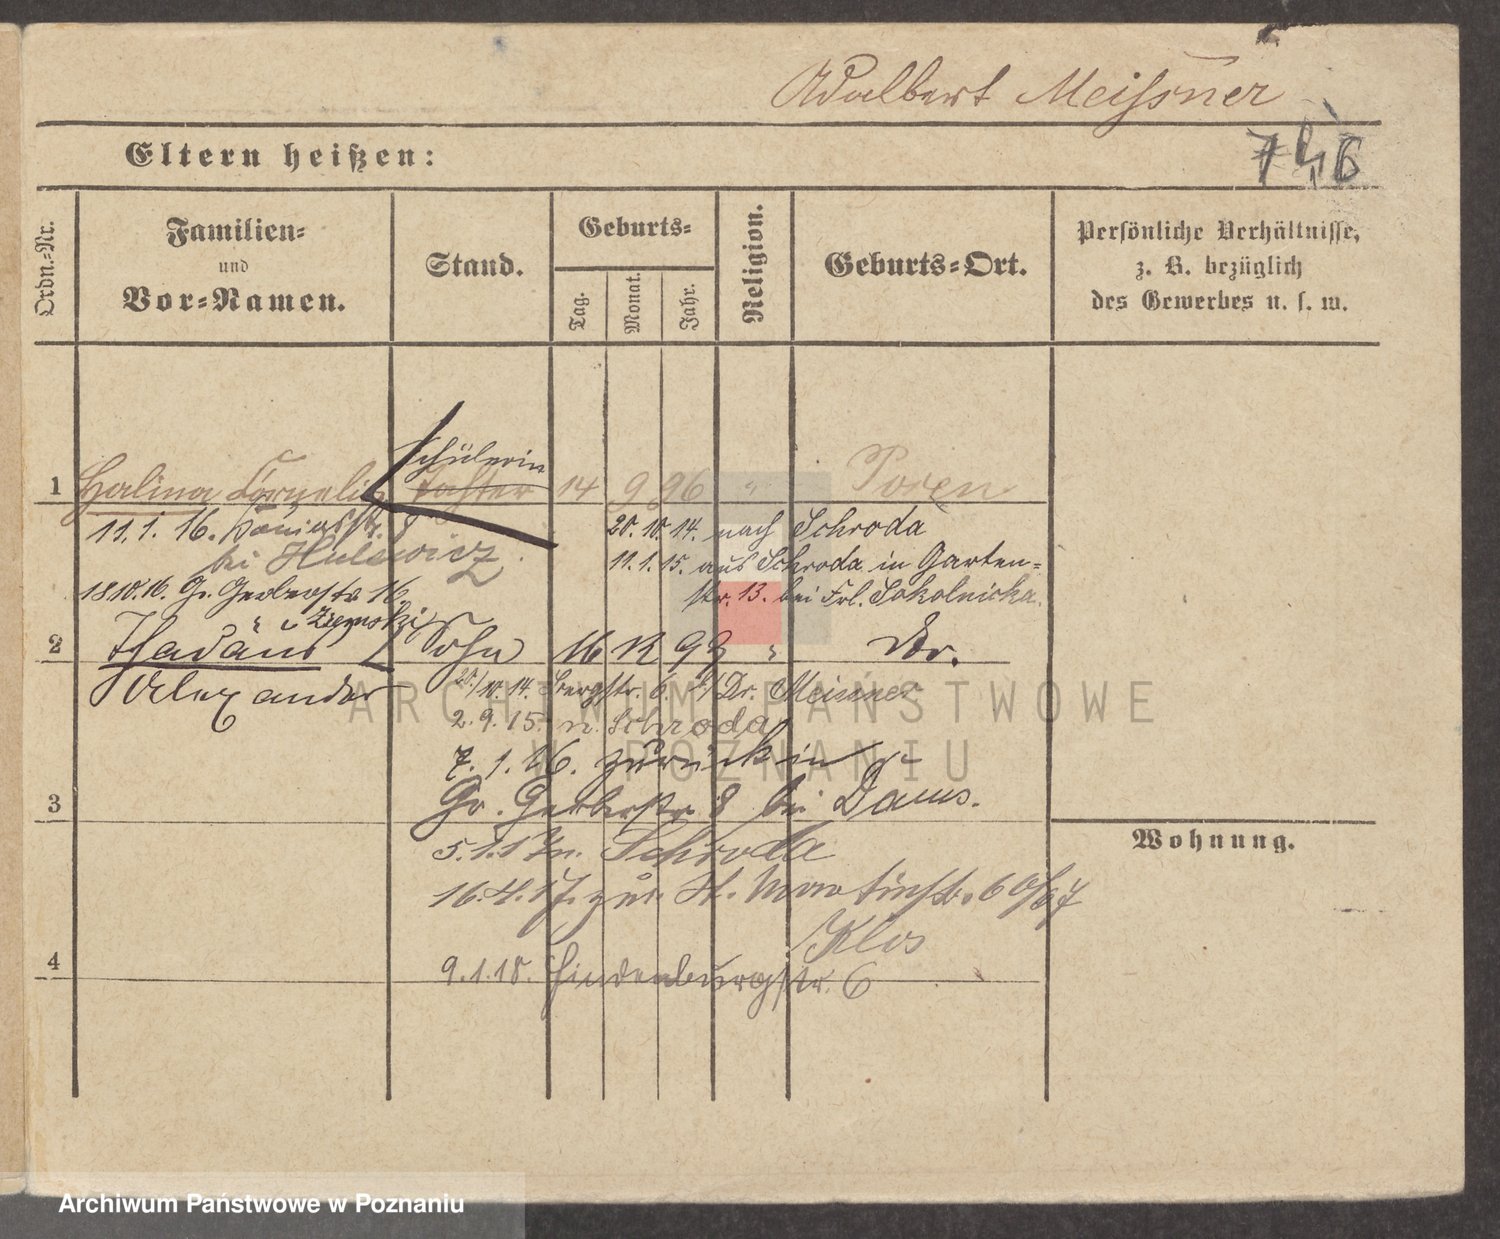 Adalbert Meißner
Eltern heißen:
746
Ordn.-Nr.
Familien-
und
Vor-Namen.
Stand.
Geburts-
Tag.
Monat.
Jahr.
Religion.
Geburts-Ort.
Persönliche Verhältnisse,
z. B. bezüglich
des Gewerbes u. s. w.
Schülerin
1 Halina Cornelia Tochter 14 9 96 " Posen
11.1.16. Königsstr. 8
bei Hulewicz
20.10.14. nach Schroda
11.1.15. aus Schroda in Garten-
str. 13. bei Frl. Sokolnicka.
18.10.16. Gr. Gerberstr. 16.
2 Thadäus Sohn 16 12 99 " Do.
Alexander
20./10.14. Bergstr. 6. Dr. Meissner
2.9.15. n. Schroda
7.1.16. zurück in
Gr. Gerberstr. 8 bei Daums.
3
5.1.17 n. Schroda
16.4.17. zur. St. Martinstr. 60/67
Klos
4
9.1.18. Hindenburgstr. 6
Wohnung.
ARCHIWUM PAŃSTWOWE
W POZNANIU
Archiwum Państwowe w Poznaniu